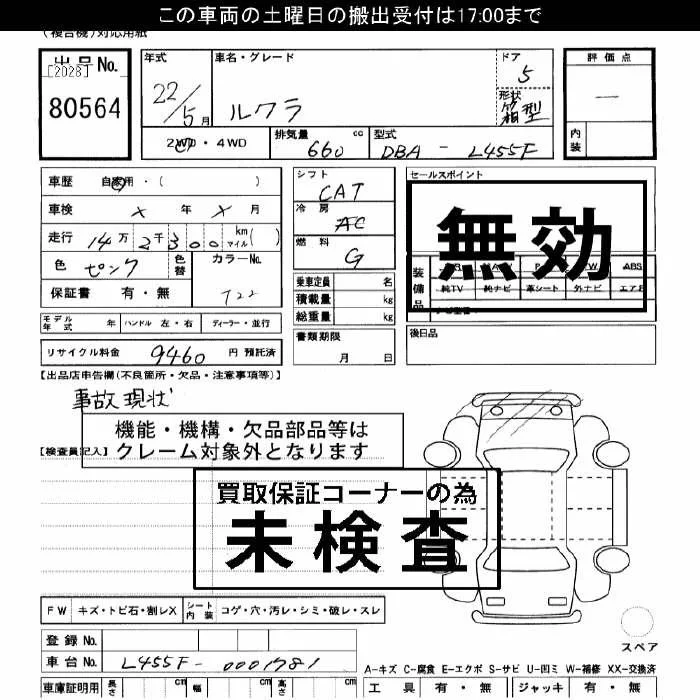 この車両の土曜日の搬出受付は17:00まで
(複合機)対応用紙
出品No. [2028] 80564
年式 22/5月
車名・グレード ルクラ
ドア 5
形状 箱型
評価点 —
内装
2WD・4WD
排気量 660 cc
型式 DBA - L455F
車歴 自家用・( )
車検 × 年 × 月
走行 14万2千300 km マイル( )
色 ピンク 色替
カラーNo. T22
保証書 有・無
シフト CAT
冷房 AC
燃料 G
乗車定員 名
積載量 kg
総重量 kg
書類期限 月 日
セールスポイント
無効
装備品
ABS
純TV 純ナビ 革シート 外ナビ エアB
後日品
モデル年式 年 ハンドル 左・右 ディーラー・並行
リサイクル料金 9460 円 預託済
【出品店申告欄(不良箇所・欠品・注意事項等)】
事故現状
機能・機構・欠品部品等は
クレーム対象外となります
【検査員記入】
買取保証コーナーの為
未検査
FW キズ・トビ石・割レX シート内装 コゲ・穴・汚レ・シミ・破レ・スレ
登録No.
車台No. L455F-0001781
スペア
A-キズ C-腐食 E-エクボ S-サビ U-凹ミ W-補修 XX-交換済
車庫証明用 長さ cm 幅 cm 高さ cm
工具 有・無 ジャッキ 有・無